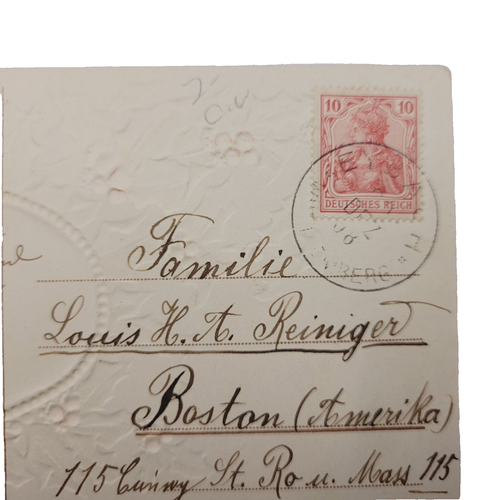 10 10
DEUTSCHES REICH
Familie
Louis H. A. Reiniger
Boston (Amerika)
115 St. Ro u. Mass 115